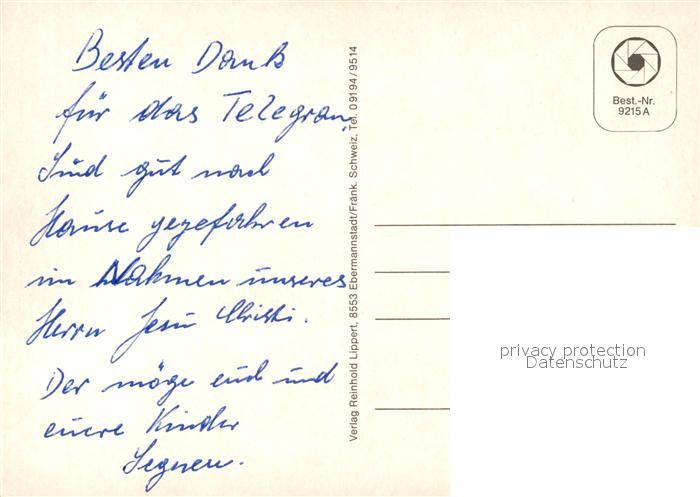 Besten Dank
für das Telegram,
Sind gut nach
Hause gezefahren
im Nahmen unseres
Herrn Jesu Christi.
Der möge euch und
euere Kinder
Segnen.
Verlag Reinhold Lippert, 8553 Ebermannstadt/Fränk. Schweiz, Tel. 09194/9514
Best.-Nr.
9215 A
privacy protection
Datenschutz